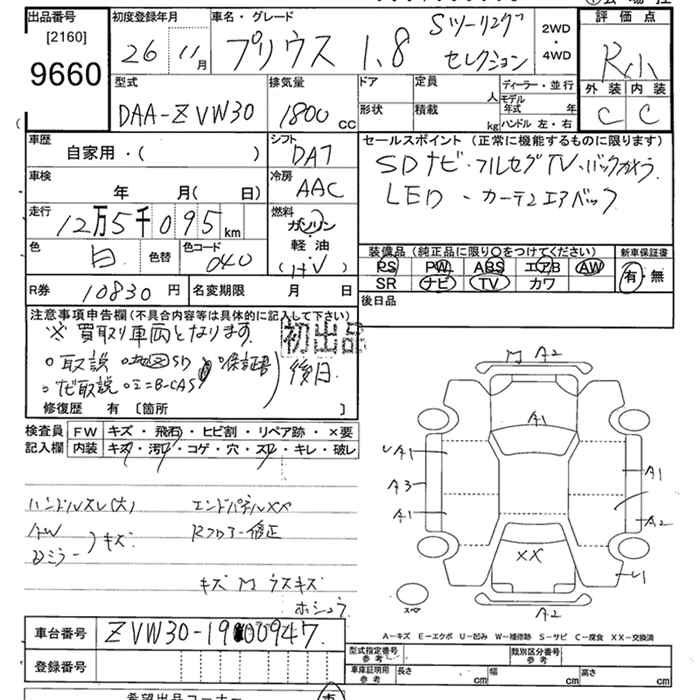 出品番号
[2160]
9660
初度登録年月
26年11月
車名・グレード
プリウス 1.8 Sツーリング
セレクション
2WD
・
4WD
評価点
R小
外装 内装
C C
型式
DAA-ZVW30
排気量
1800 cc
ドア
形状
定員 人
積載 kg
ディーラー・並行
モデル年式 年
ハンドル 左・右
車歴
自家用・( )
シフト
DAT
車検
年 月( 日)
冷房
AAC
走行
12万5千095 km
燃料
ガソリン
・
軽油
(H・V)
色
白
色替
色コード
040
セールスポイント (正常に機能するものに限ります)
SDナビ・フルセグTV・バックカメラ
LED ・ カーテンエアバック
装備品 (純正品に限り○をつけてください)
新車保証書
PS PW ABS エアB AW
SR ナビ TV カワ
有・無
R券 10830 円
名変期限 月 日
後日品
注意事項申告欄(不具合内容等は具体的に記入して下さい)
※買取り車両となります
初出品
・取説 ・地図SD ・保証書
・ナビ取説 ・ミニB-CAS
後日
修復歴 有 [箇所 ]
検査員
記入欄
FW キズ・飛石・ヒビ割・リペア跡・×要
内装 キズ・汚れ・コゲ・穴・スレ・キレ・破レ
ハンドルスレ(大) エンドパネルXX
AW
Dミラー
キズ
Rフロアー修正
キズ M ウスキズ
ホシュウ
M A2
A1
U A1
A3
A1
A1
A2
XX
U1
A2
スペア
A-キズ E-エクボ U-凹み W-補修跡 S-サビ C-腐食 XX-交換済
車台番号
ZVW30-1900947
登録番号
型式指定番号
参考
類別区分番号
参考
車庫証明用
参考
長さ cm
幅 cm
高さ cm
希望出品コーナー